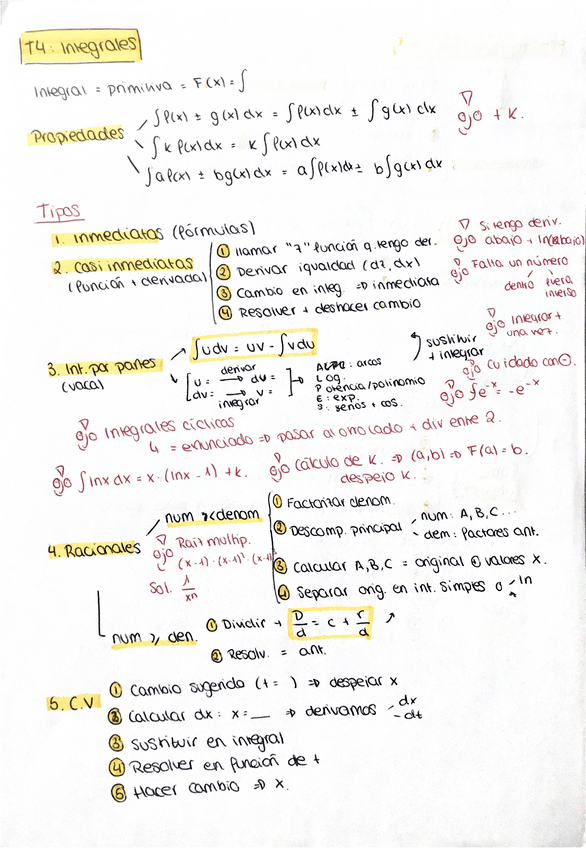 T4: Integrales
Integral = primitiva = F(x) = ∫
Propiedades
∫f(x) ± g(x) dx = ∫f(x) dx ± ∫g(x) dx
∫k f(x) dx = k ∫f(x) dx
∫a f(x) ± b g(x) dx = a∫f(x) dx ± b∫g(x) dx
ojo + k.
Tipos
1. Inmediatas (fórmulas)
2. Casi inmediatas
(función + derivada)
① llamar "z" función q. tengo der.
② Derivar igualdad (dz, dx)
③ Cambio en integ. ⇒ inmediata
④ Resolver + deshacer cambio
Si tengo deriv.
ojo abajo + ln(abajo)
ojo Falta un número
dentro fuera
inverso
3. Int. por partes
(vaca)
∫u dv = uv - ∫v du
derivar
u = → du =
dv = → v =
integrar
: arcos
LOG.
Potencia/polinomio
E: exp.
S: senos + cos.
sustituir
+ integrar
ojo Integrar +
una vez.
ojo cuidado con ⊖.
ojo ∫e⁻ˣ = -e⁻ˣ
ojo Integrales cíclicas
↳ = enunciado ⇒ pasar al otro lado + div entre 2.
ojo ∫ln x dx = x · (ln x - 1) + k.
ojo cálculo de k. ⇒ (a,b) ⇒ F(a) = b.
despejo k.
4. Racionales
num < denom
ojo Raíz multip.
(x-1) · (x-1)² · (x-1)³
Sol. 1/xn
① Factorizar denom.
② Descomp. principal
num: A, B, C...
dem: factores ant.
③ Calcular A, B, C = original ⊕ valores x.
④ Separar orig. en int. simples o ln
num ≥ den.
① Dividir + D/d = c + r/d
② Resolv. = ant.
5. C.V
① Cambio sugerido (t = ) ⇒ despejar x
② Calcular dx: x = __ ⇒ derivamos dx
dt
③ sustituir en integral
④ Resolver en función de t
⑤ Hacer cambio ⇒ x.